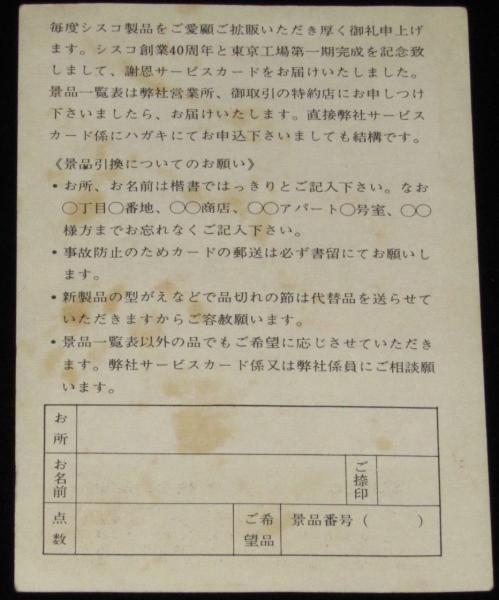 毎度シスコ製品をご愛顧ご拡販いただき厚く御礼申上げ
ます。シスコ創業40周年と東京工場第一期完成を記念致
しまして、謝恩サービスカードをお届けいたしました。
景品一覧表は弊社営業所、御取引の特約店にお申しつけ
下さいましたら、お届けいたします。直接弊社サービス
カード係にハガキにてお申込下さいましても結構です。
《景品引換についてのお願い》
• お所、お名前は楷書ではっきりとご記入下さい。なお
○丁目○番地、○○商店、○○アパート○号室、○○
様方までお忘れなくご記入下さい。
• 事故防止のためカードの郵送は必ず書留にてお願いし
ます。
• 新製品の型がえなどで品切れの節は代替品を送らせて
いただきますからご容赦願います。
• 景品一覧表以外の品でもご希望に応じさせていただき
ます。弊社サービスカード係又は弊社係員にご相談願
います。
お所
お名前
ご捺印
点数
ご希望品
景品番号（　　）